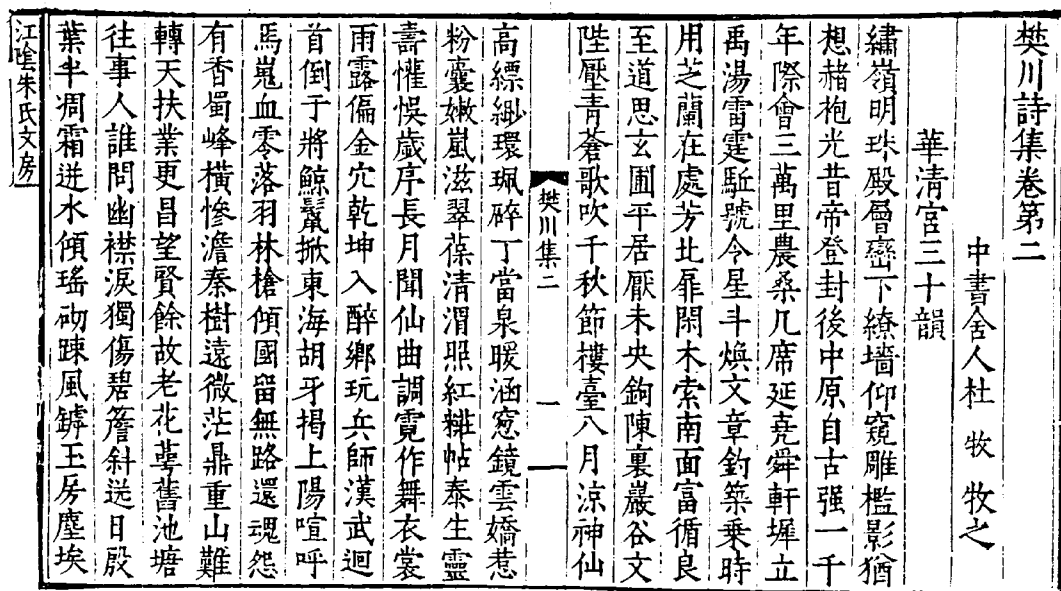 樊川詩集卷第二
中書舍人杜 牧 牧之
華清宮三十韻
繡嶺明珠殿層巒下繚墻仰窺雕檻影猶
想赭袍光昔帝登封後中原自古强一千
年際會三萬里農桑几席延堯舜軒墀立
禹湯雷霆馳號令星斗煥文章釣築乗時
用芝蘭在處芳北扉閑木索南面富循良
至道思玄圃平居厭未央鉤陳裏巖谷文
陛壓青蒼歌吹千秋節樓臺八月涼神仙
樊川集二
一
高縹緲環珮碎丁當泉暖涵窓鏡雲嬌惹
粉囊嫩嵐滋翠葆清渭照紅糚帖泰生靈
壽懽娛歲序長月聞仙曲調霓作舞衣裳
雨露偏金穴乾坤入醉鄉玩兵師漢武迴
首倒于將鯨鬣掀東海胡牙揭上陽喧呼
馬嵬血零落羽林槍傾國留無路還魂怨
有香蜀峰橫慘澹秦樹遠微茫鼎重山難
轉天扶業更昌望賢餘故老花萼舊池塘
往事人誰問幽襟淚獨傷碧簷斜送日殷
葉半凋霜迸水傾瑤砌踈風罅玉房塵埃
江陰朱氏文房